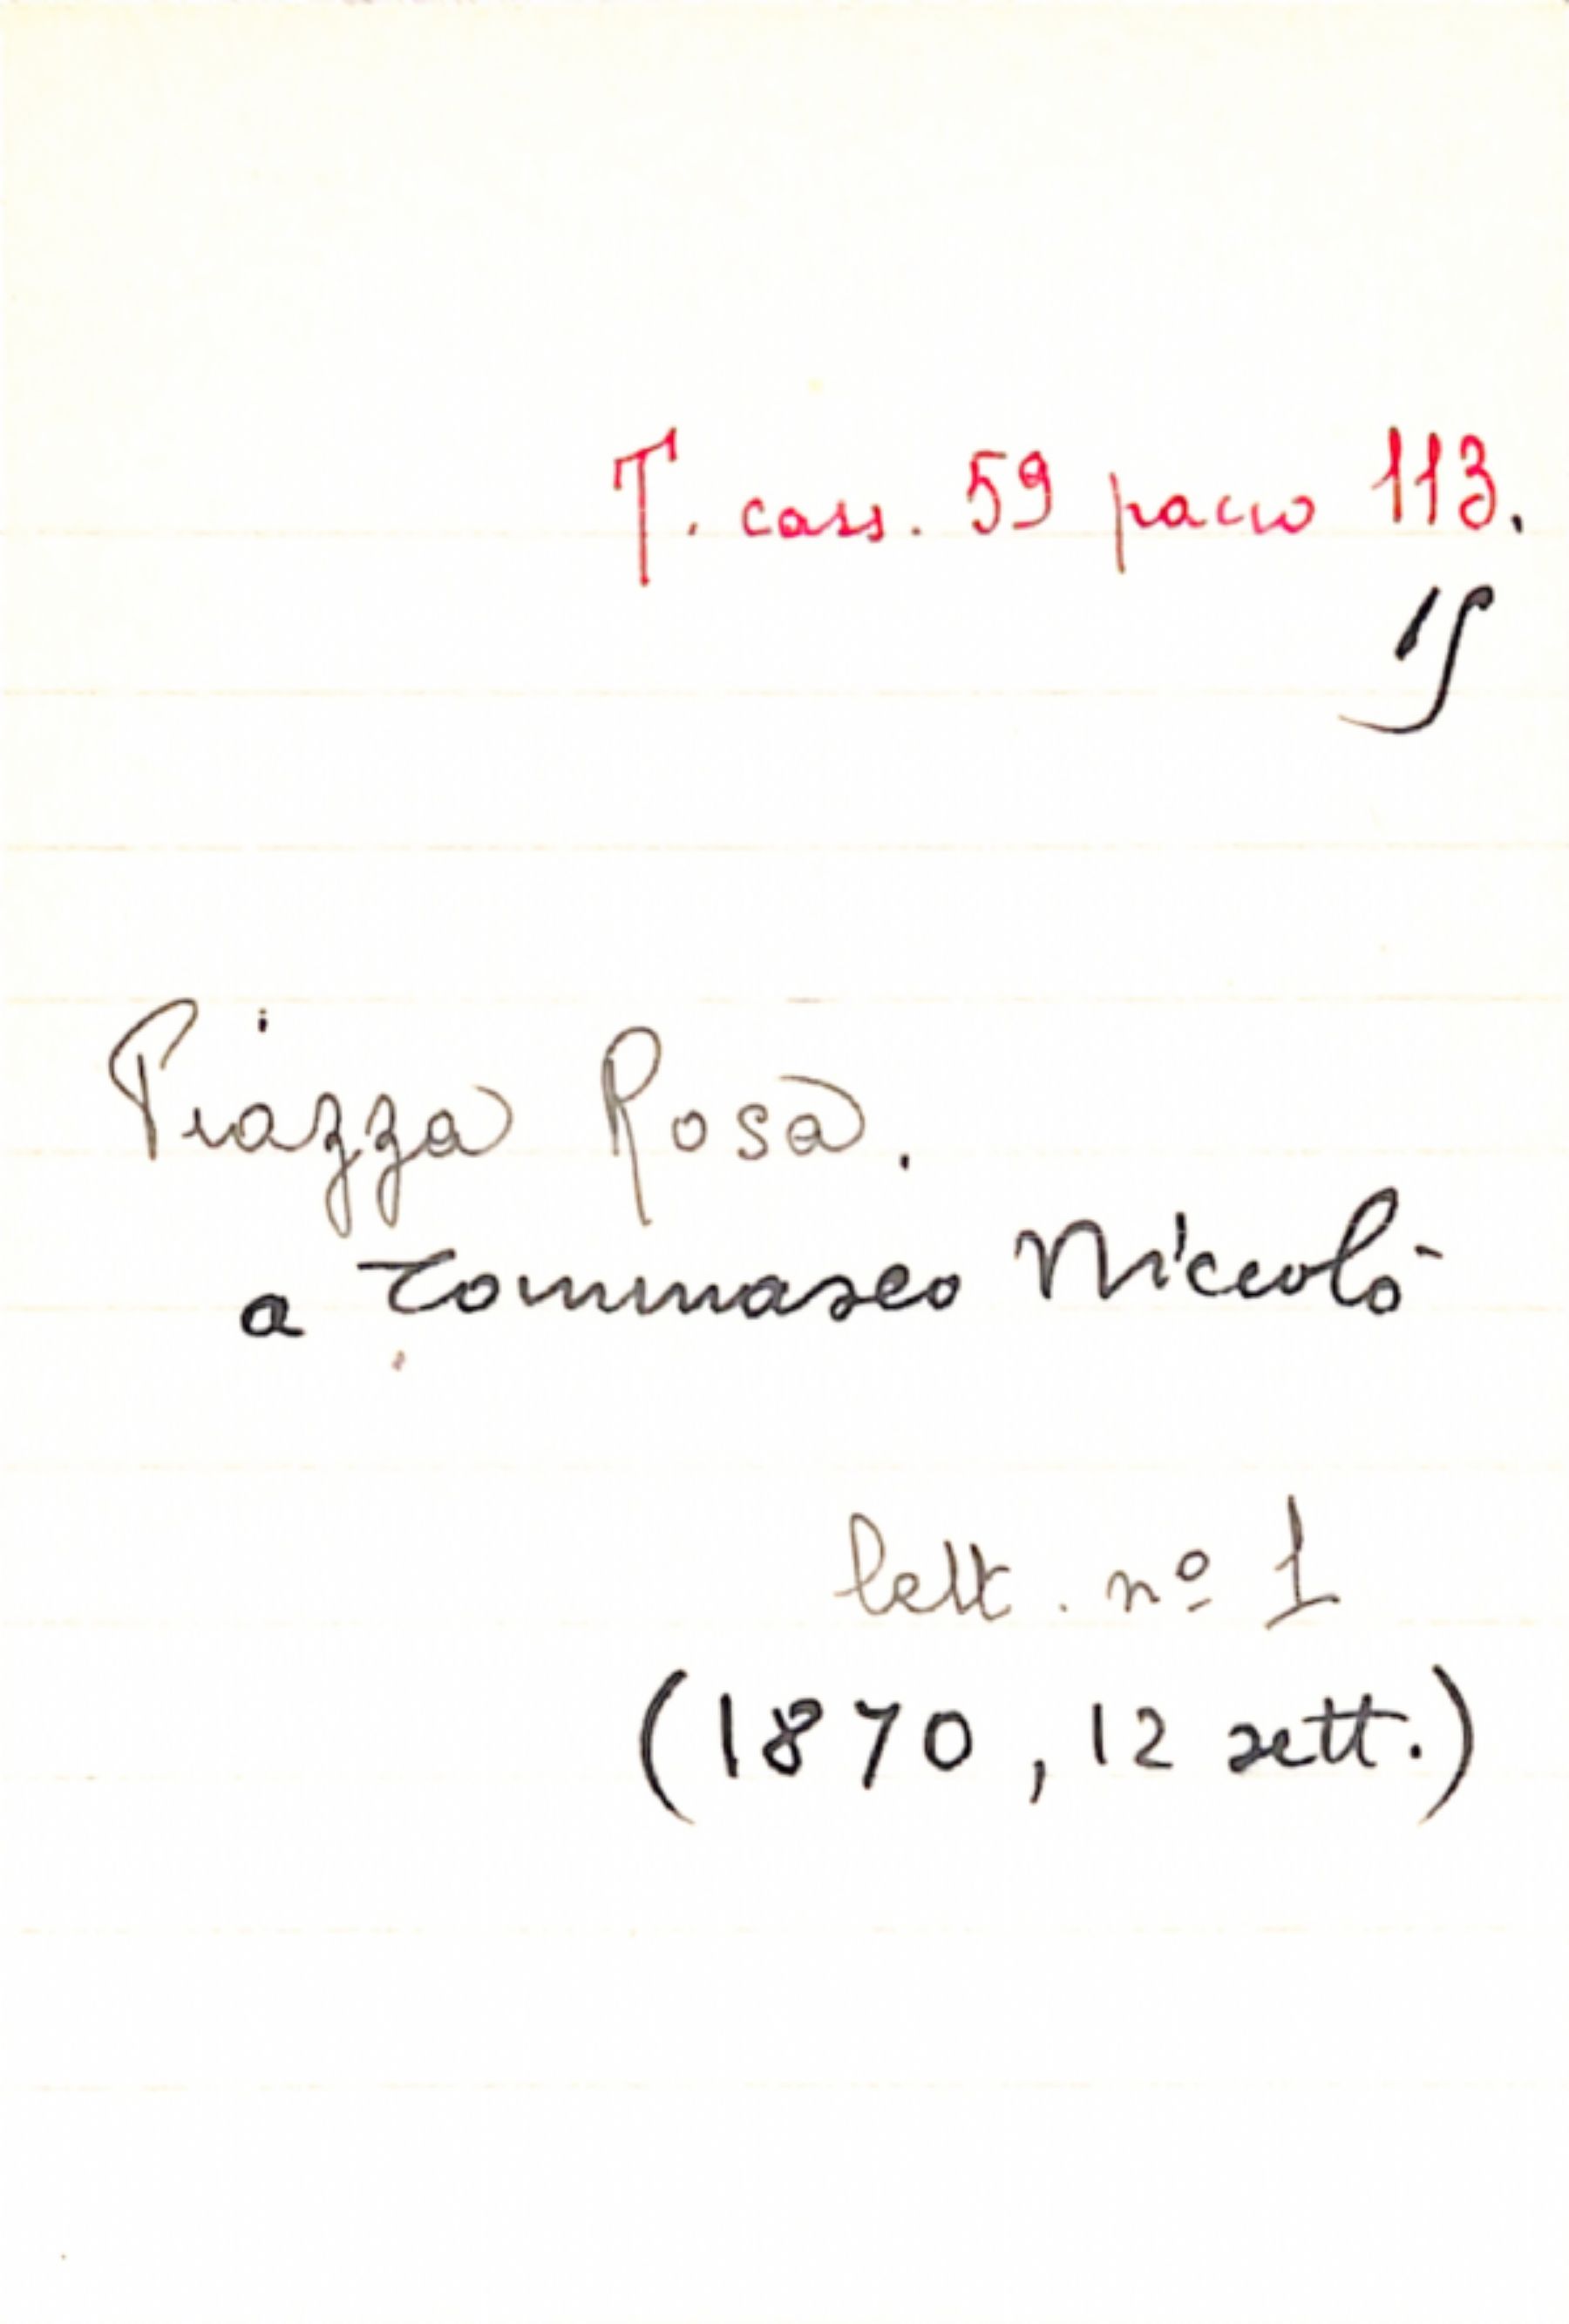 T. cass. 59 pacco 113.
15
Piazza Rosa.
a Tommaseo Niccolò
lett. nº 1
(1870, 12 sett.)